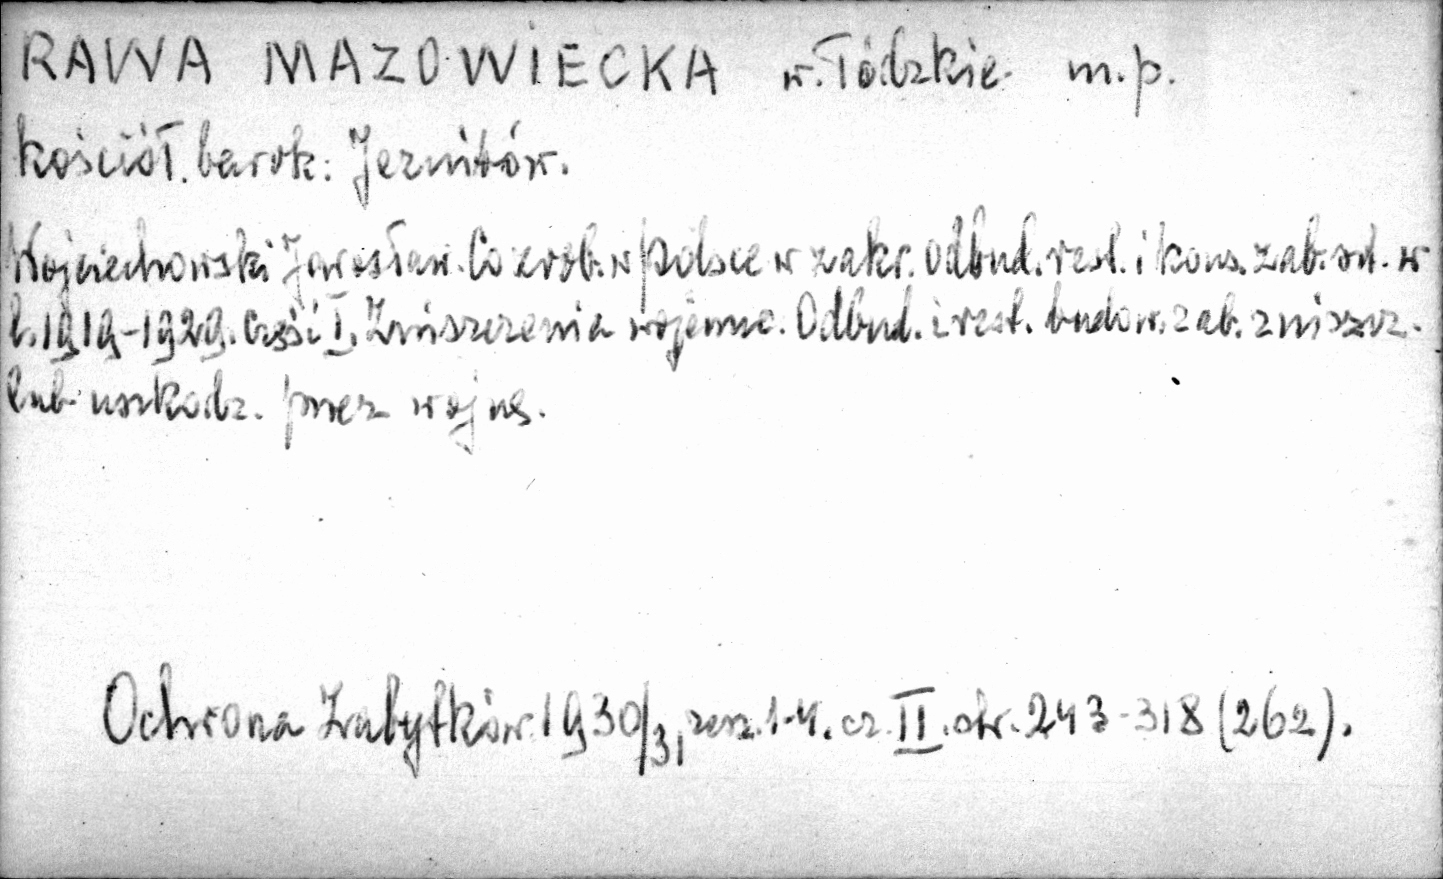 RAWA MAZOWIECKA w. Łódzkie m.p.
kościół barok: Jezuitów.
Wojciechowski Jarosław. Co zrob. w Polsce w zakr. odbud. rest. i kons. zab. szt. w
l. 1919-1929. Część I. Zniszczenia wojenne. Odbud. i rest. budow. zab. zniszcz.
lub uszkodz. przez wojnę.
Ochrona Zabytków 1930/31 zesz. 1-4. cz. II. str. 243-318 (262).